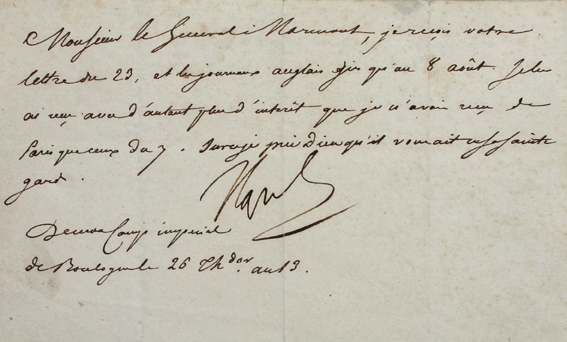 Monsieur le General Marmont, je reçois votre
lettre du 23, et les journaux anglais jusqu'au 8 août. Je les
ai reçu avec d'autant plus d'intérêt que je n'avais reçu de
Paris que ceux du 7. Sur ce je prie Dieu qu'il vous ait en sa sainte
garde.
Nap
De mon Camp impérial
de Boulogne le 26 Th.dor an 13.